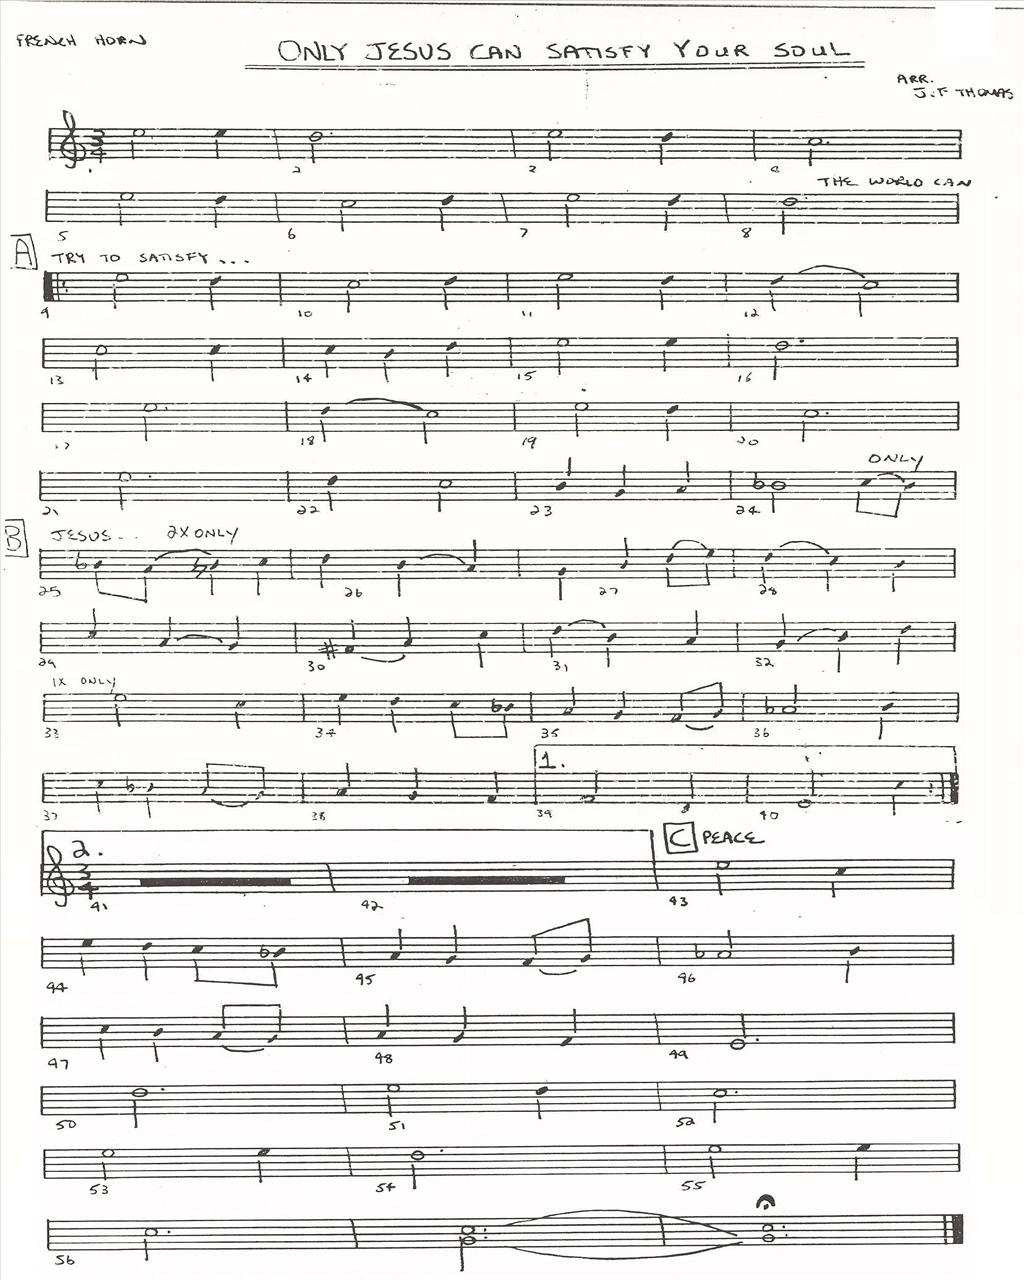 FRENCH HORN
ONLY JESUS CAN SATISFY YOUR SOUL
ARR.
J.F THOMAS
3
4
1 2 3 4
THE WORLD CAN
5 6 7 8
A TRY TO SATISFY...
9 10 11 12
13 14 15 16
17 18 19 20
ONLY
21 22 23 24
B JESUS... 2X ONLY
25 26 27 28
29 30 31 32
1X ONLY
33 34 35 36
1.
37 38 39 40
2. C PEACE
3
4
41 42 43
44 45 46
47 48 49
50 51 52
53 54 55
56